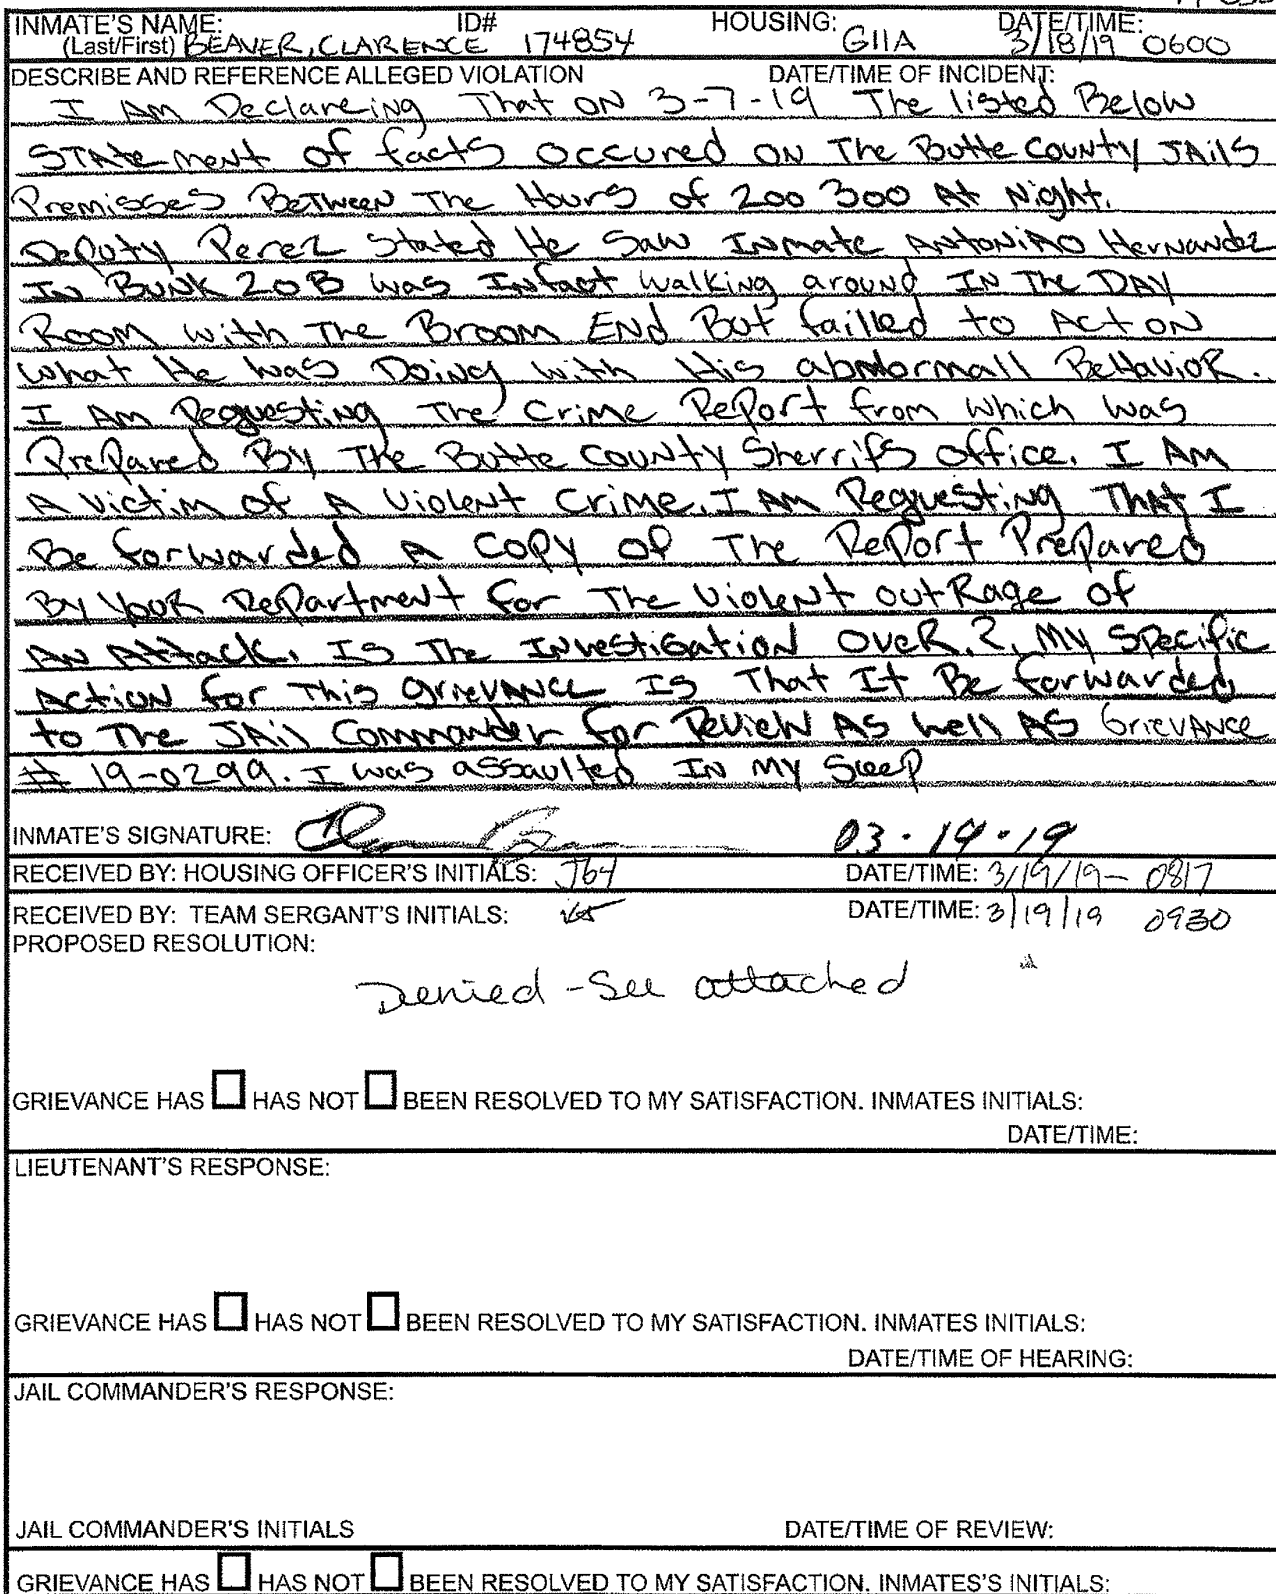 INMATE'S NAME: ID# HOUSING: DATE/TIME:
(Last/First) BEAVER, CLARENCE 174854 G11A 3/18/19 0600
DESCRIBE AND REFERENCE ALLEGED VIOLATION DATE/TIME OF INCIDENT:
I AM Declareing That ON 3-7-19 The listed Below
STATement of facts occured ON The Butte County JAils
Premisses Between The Hours of 200 300 At Night.
Deputy Perez stated He Saw Inmate ANTONIAO Hernandez
IN BUNK 20B was Infact walking around IN The DAY
Room with The Broom END But failled to Act ON
what He was Doing with His abmormall BeHavioR.
I AM Requesting The Crime Report from which was
Prepared By The Butte County Sherrifs office. I AM
A victim of A Violent Crime. I AM Requesting That I
Be forwarded A copy of The Report Prepared
By YouR Department for The Violent outRage of
AN Attack. Is The Investigation OveR.? My Specific
Action for This grievance Is That It Be forwarded
to The JAil Commander for Review As well AS Grievance
# 19-0299. I was assaulted IN MY Sleep
INMATE'S SIGNATURE: 03-19-19
RECEIVED BY: HOUSING OFFICER'S INITIALS: J64 DATE/TIME: 3/19/19- 0817
RECEIVED BY: TEAM SERGANT'S INITIALS: DATE/TIME: 3/19/19 0930
PROPOSED RESOLUTION:
Denied - See attached
GRIEVANCE HAS HAS NOT BEEN RESOLVED TO MY SATISFACTION. INMATES INITIALS:
DATE/TIME:
LIEUTENANT'S RESPONSE:
GRIEVANCE HAS HAS NOT BEEN RESOLVED TO MY SATISFACTION. INMATES INITIALS:
DATE/TIME OF HEARING:
JAIL COMMANDER'S RESPONSE:
JAIL COMMANDER'S INITIALS DATE/TIME OF REVIEW:
GRIEVANCE HAS HAS NOT BEEN RESOLVED TO MY SATISFACTION. INMATES'S INITIALS: